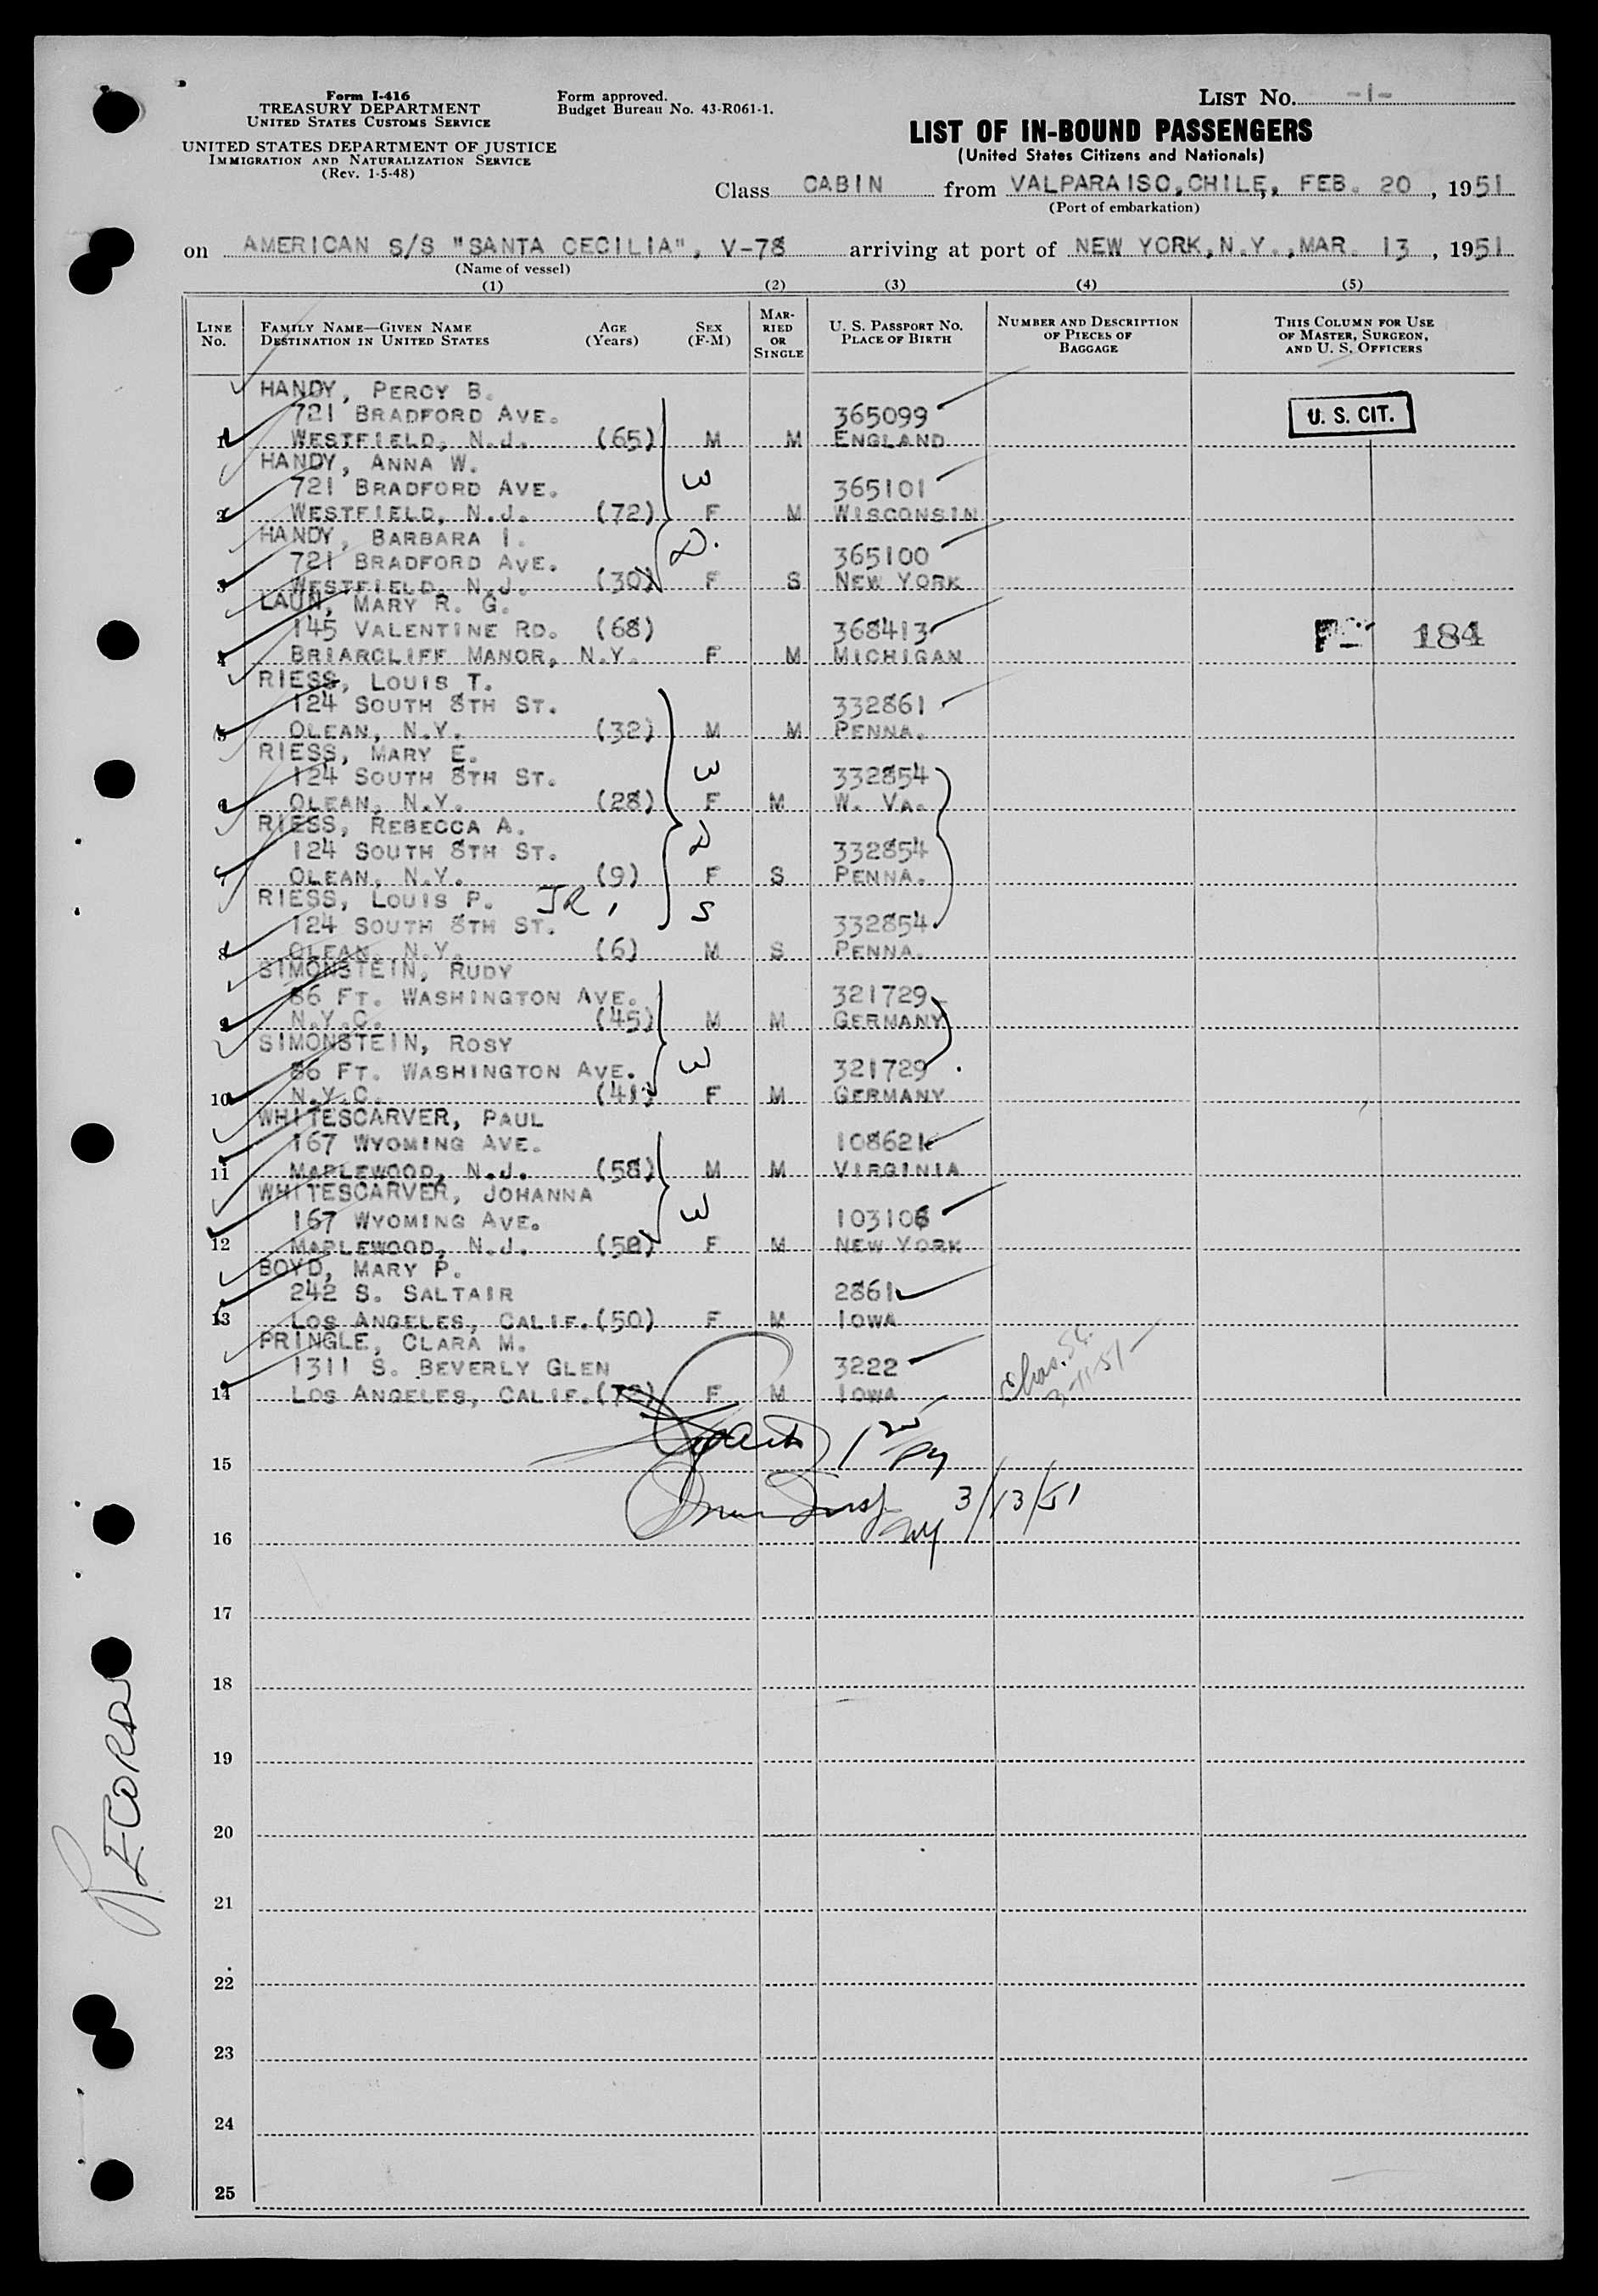 Form I-416
TREASURY DEPARTMENT
UNITED STATES CUSTOMS SERVICE
UNITED STATES DEPARTMENT OF JUSTICE
IMMIGRATION AND NATURALIZATION SERVICE
(Rev. 1-5-48)
Form approved.
Budget Bureau No. 43-R061-1.
LIST NO. -1-
LIST OF IN-BOUND PASSENGERS
(United States Citizens and Nationals)
Class CABIN from VALPARAISO, CHILE, FEB. 20, 1951
(Port of embarkation)
on AMERICAN S/S "SANTA CECILIA", V-78 arriving at port of NEW YORK, N.Y., MAR. 13, 1951
(Name of vessel)
(1) (2) (3) (4) (5)
LINE NO. FAMILY NAME—GIVEN NAME DESTINATION IN UNITED STATES AGE (Years) SEX (F-M) MARRIED OR SINGLE U. S. PASSPORT NO. PLACE OF BIRTH NUMBER AND DESCRIPTION OF PIECES OF BAGGAGE THIS COLUMN FOR USE OF MASTER, SURGEON, AND U. S. OFFICERS
HANDY, PERCY B.
721 BRADFORD AVE. 365099 U. S. CIT.
1 WESTFIELD, N.J. (65) M M ENGLAND
HANDY, ANNA W.
721 BRADFORD AVE. W 365101
2 WESTFIELD, N.J. (72) F M WISCONSIN
HANDY, BARBARA I. D.
721 BRADFORD AVE. 365100
3 WESTFIELD, N.J. (30) F S NEW YORK
LAUN, MARY R. G.
145 VALENTINE RD. (68) 368413 184
4 BRIARCLIFF MANOR, N.Y. F M MICHIGAN
RIESS, LOUIS T.
124 SOUTH 8TH ST. 332861
5 OLEAN, N.Y. (32) M M PENNA.
RIESS, MARY E.
124 SOUTH 8TH ST. W 332854
6 OLEAN, N.Y. (28) F M W. VA.
RIESS, REBECCA A.
124 SOUTH 8TH ST. D 332854
7 OLEAN, N.Y. (9) F S PENNA.
RIESS, LOUIS P. JR, S
124 SOUTH 8TH ST. 332854
8 OLEAN, N.Y. (6) M S PENNA.
SIMONSTEIN, RUDY
86 FT. WASHINGTON AVE. 321729
9 N.Y.C. (45) M M GERMANY
SIMONSTEIN, ROSY
86 FT. WASHINGTON AVE. W 321729
10 N.Y.C. (41) F M GERMANY
WHITESCARVER, PAUL
167 WYOMING AVE. 108621
11 MAPLEWOOD, N.J. (58) M M VIRGINIA
WHITESCARVER, JOHANNA
167 WYOMING AVE. W 103106
12 MAPLEWOOD, N.J. F M NEW YORK
BOYD, MARY P.
242 S. SALTAIR 2861
13 LOS ANGELES, CALIF. (50) F M IOWA
PRINGLE, CLARA M.
1311 S. BEVERLY GLEN 3222
14 LOS ANGELES, CALIF. F M IOWA
15
3/13/51
16
17
18
19
20
21
22
23
24
25
RECORD